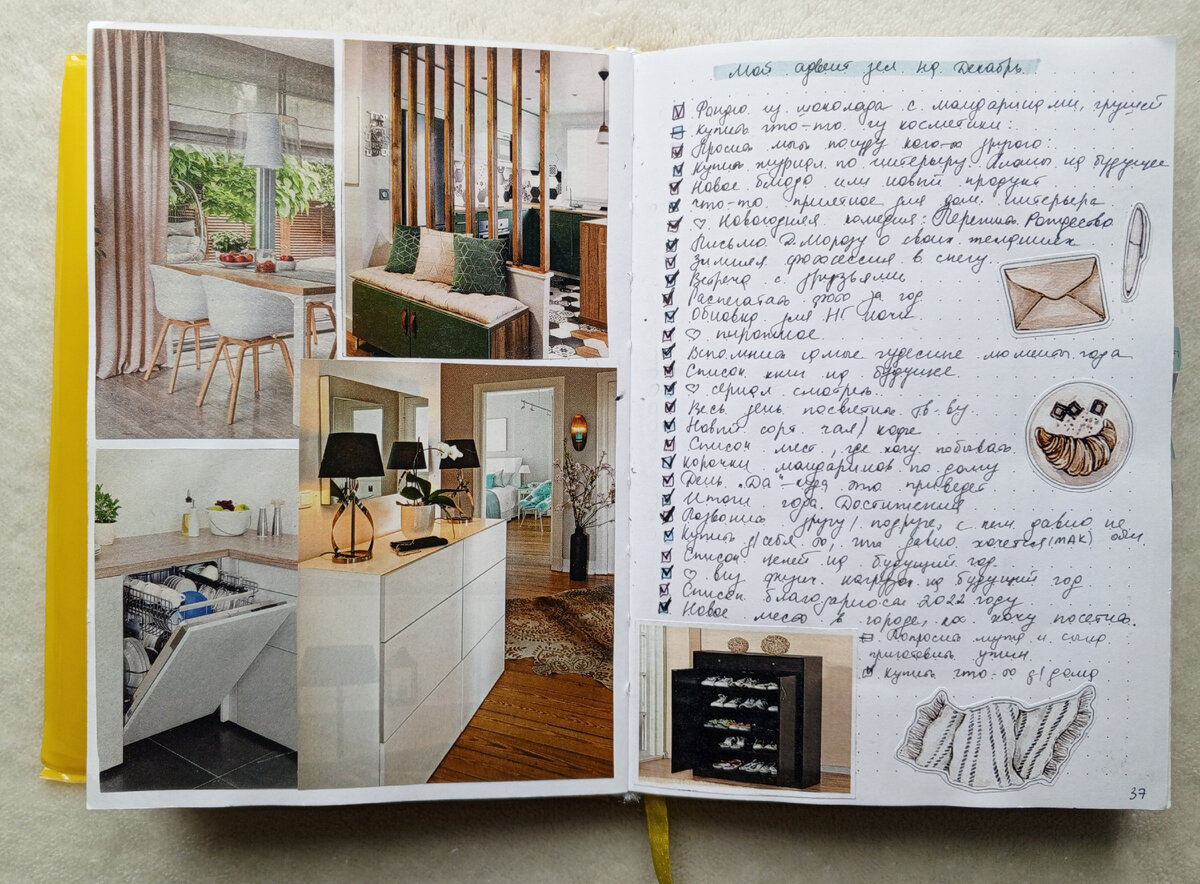 Мой адвент дел на Декабрь.
Фондю из шоколада с мандаринами, грушей
Купить что-то из косметики:
Просить мыть посуду кого-то другого:
Купить журнал по интерьеру. Планы на будущее
Новое блюдо или новый продукт
Что-то приятное для дом. интерьера
♡ Новогодняя комедия: Рождество
Письмо Д. Морозу о своих желаниях
Зимняя фотосессия в снегу.
Встреча с друзьями
Распечатать фото за год
Обновка для НГ ночи.
♡ пирожное
Вспомнить самые чудесные моменты года
Список книг на будущее.
♡ сериал смотреть.
Весь день посвятить
Новый сорт чая/кофе
Список мест, где хочу побывать
Корочки мандаринов по дому
День "Да" - куда это приведет
Итоги года. Достижения
Позвонить другу/подруге, с кем давно не
Купить д/себя то, что давно хочется (МАК)
Список целей на будущий год
♡ нагрузок на будущий год
Список благодарностей 2022 году
Новое место в городе, хочу посетить.
Попросить мужа и сына
приготовить ужин.
Купить что-то д/дома
37